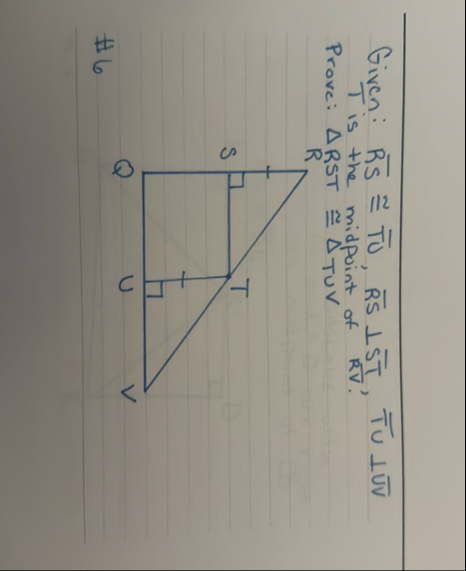 Given: RS ≅ TU, RS ⊥ ST, TU ⊥ UV
T is the midpoint of RV.
Prove: △RST ≅ △TUV
R
S
T
Q
U
V
#6